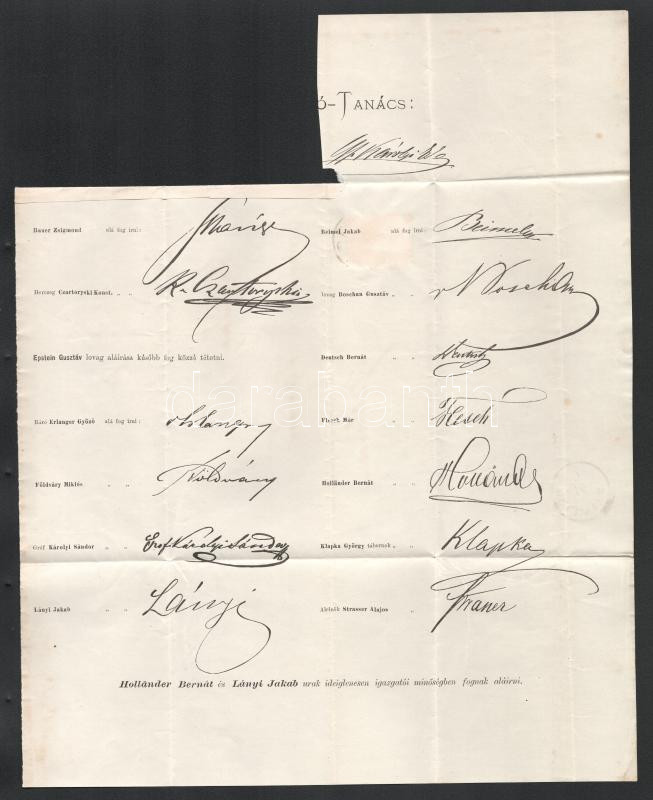 Ó-TANÁCS:
Bauer Zsigmond alá fog irni:
Beimel Jakab alá fog irni: Beimel
Herczeg Czartoryski Konst. „ „ K. Czartoryski
lovag Boschan Gusztáv „ „ Boschan
Epstein Gusztáv lovag aláirása később fog közzé tétetni.
Deutsch Bernát „ „
darabanth.com
Báró Erlanger Győző alá fog irni: Erlanger
Flesch Mór „ „ Flesch
Földváry Miklós „ „ Földváry
Holländer Bernát „ „ Holländer
Gróf Károlyi Sándor „ „ Gróf Károlyi Sándor
Klapka György tábornok „ „ Klapka
Lányi Jakab „ „ Lányi
Alelnök Strasser Alajos „ Strasser
Holländer Bernát és Lányi Jakab urak ideiglenesen igazgatói minőségben fognak aláirni.